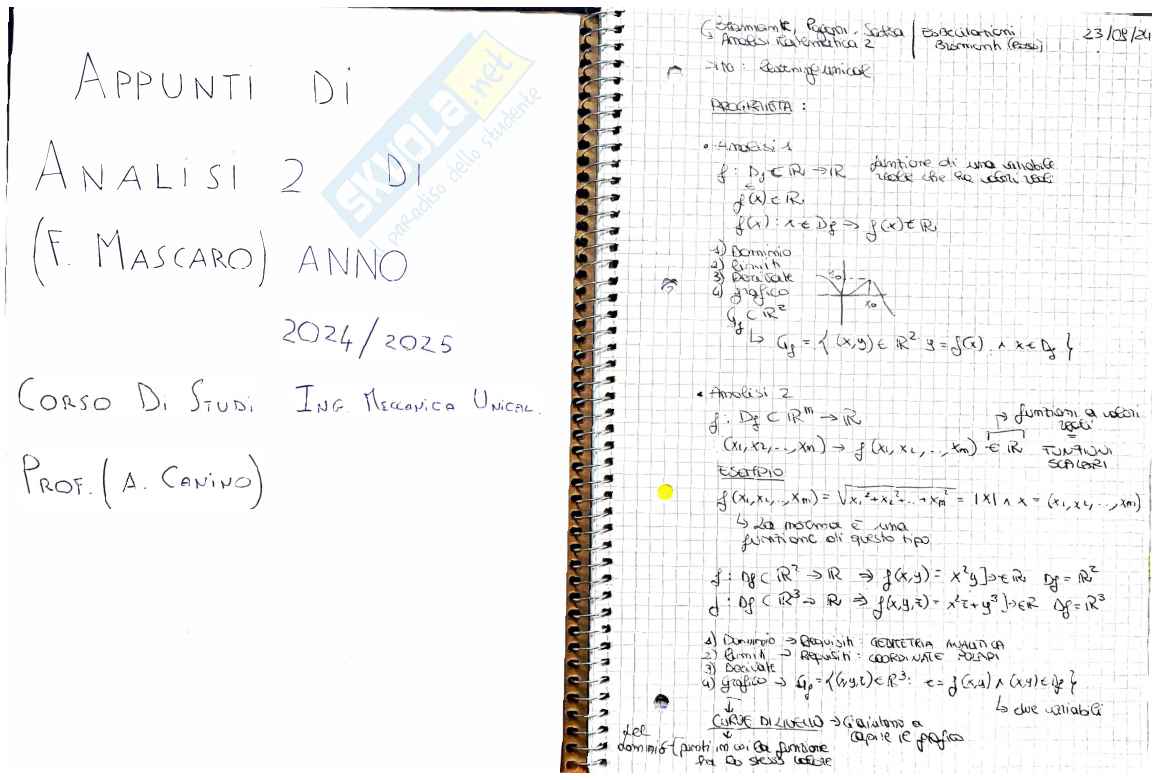 APPUNTI DI
ANALISI 2 DI
(F. MASCARO) ANNO
2024/2025
CORSO DI STUDI ING. MECCANICA UNICAL.
PROF. (A. CANINO)
SKUOLA.net
il paradiso dello studente
Analisi Matematica 2
23/09/24
PROGRAMMA :
• Analisi 1
f : Df ⊂ ℝ → ℝ funzione di una variabile
reale che ha valori reali
f(x) ∈ ℝ
f(x) : x ∈ Df ⇒ f(x) ∈ ℝ
1) Dominio
2) Limiti
3) Derivate
4) grafico
x₀
Gf ⊂ ℝ²
↳ Gf = { (x,y) ∈ ℝ² y = f(x) ∧ x ∈ Df }
• Analisi 2
f : Df ⊂ ℝⁿ → ℝ
→ funzioni a valori
reali
(x₁, x₂, .., xn) → f(x₁, x₂, .., xn) ∈ ℝ FUNZIONI
SCALARI
ESEMPIO
f(x₁, x₂, .., xn) = √x₁²+x₂²+..+xn² = |x| ∧ x = (x₁, x₂, .., xn)
↳ La norma è una
funzione di questo tipo
f : Df ⊂ ℝ² → ℝ ⇒ f(x,y) = x²y ]→ ∈ ℝ Df = ℝ²
f : Df ⊂ ℝ³ → ℝ ⇒ f(x,y,z) = x²z + y³ ]→ ∈ ℝ Df = ℝ³
1) Dominio → Requisiti : GEOMETRIA ANALITICA
2) Limiti → Requisiti : COORDINATE POLARI
3) Derivate
4) grafico → Gf = {(x,y,z) ∈ ℝ³ : z = f(x,y) ∧ (x,y) ∈ Df }
↳ due variabili
CURVE DI LIVELLO → Ci aiutano a
capire il grafico
del
dominio (punti in cui la funzione
ha lo stesso valore